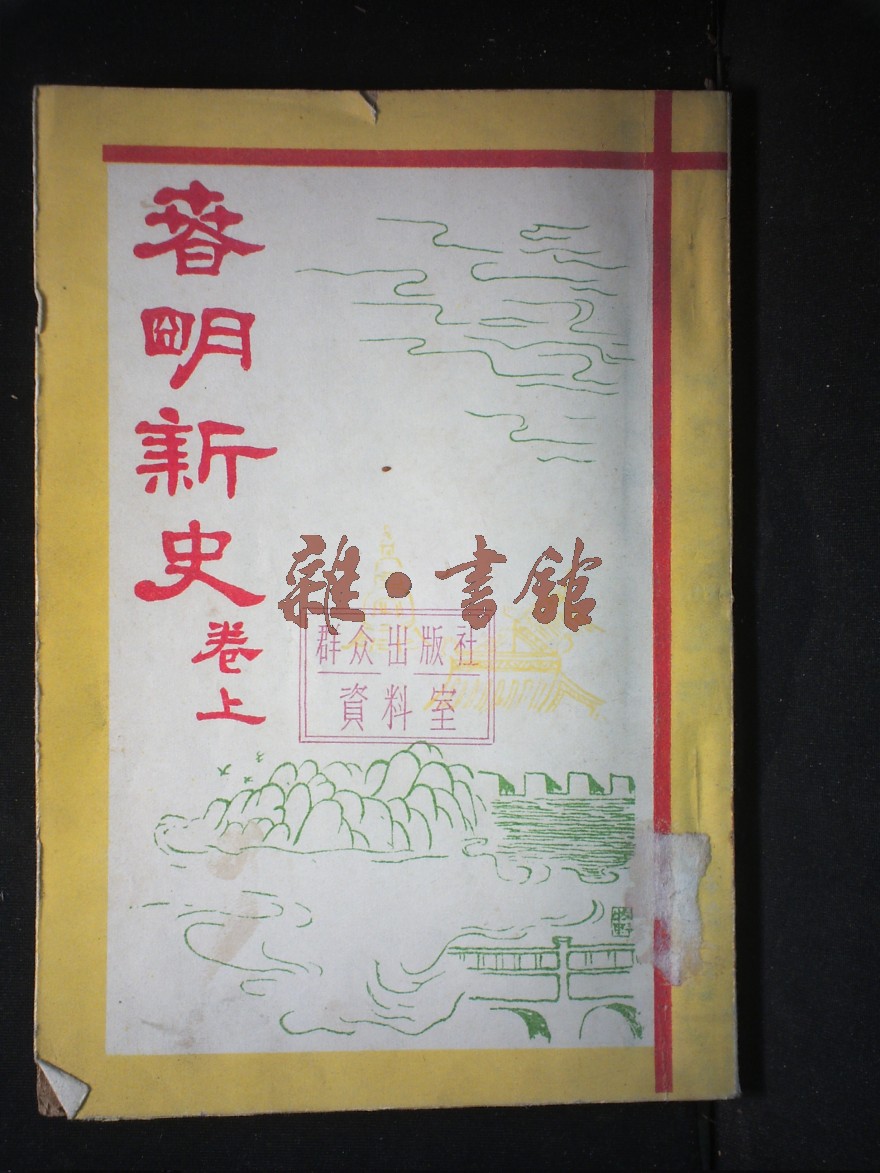 春明新史
卷上
雜·書館
群众出版社
資料室